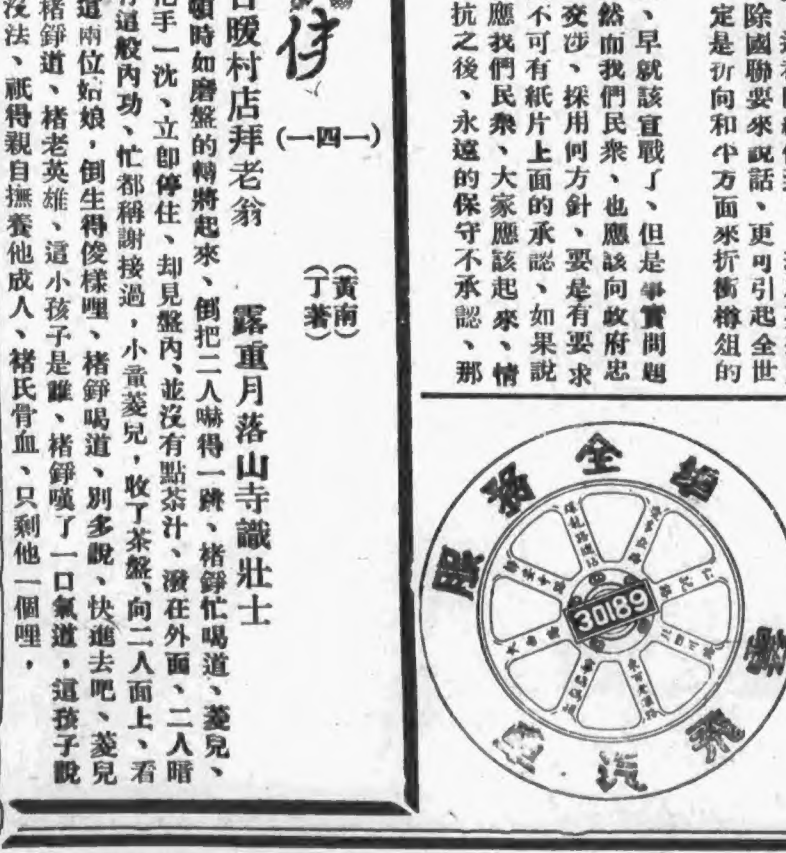 除國聯要來說話、更可引起全世
定是折向和平方面來折衝樽俎的
、早就該宣戰了、但是事實問題
然而我們民衆、也應該向政府忠
交涉、採用何方針、要是有要求
不可有紙片上面的承認、如果說
應我們民衆、大家應該起來、情
抗之後、永遠的保守不承認、那
侠
(一四一)
(黃南)
(丁著)
日暖村店拜老翁　露重月落山寺識壯士
頓時如磨盤的轉將起來、倒把二人嚇得一跳、褚錚忙喝道、菱兒、
把手一沈、立卽停住、却見盤內、並沒有點茶汁、潑在外面、二人暗
有這般內功、忙都稱謝接過，小童菱兒，收了茶盤、向二人面上、看
這兩位姑娘，倒生得俊樣哩、褚錚喝道、別多說、快進去吧、菱兒
褚錚道、褚老英雄、這小孩子是誰、褚錚嘆了一口氣道，這孩子說
沒法、祇得親自撫養他成人、褚氏骨血、只剩他一個哩，
服務全
飛
汽
30189